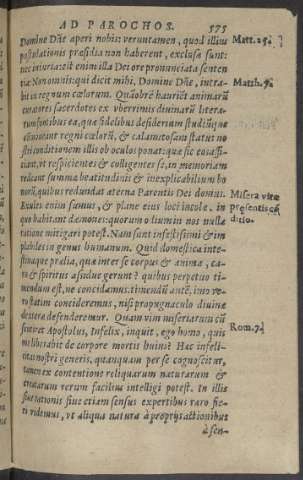 AD PAROCHOS. 575
Domine Dñe aperi nobis: veruntamen, quod illius
postulationis præsidia non haberent, exclusæ sunt:
nec iniuria: est enim illa Dei ore pronunciata senten
tia: Non omnis: qui dicit mihi, Domine Dñe, intra-
bit in regnum cœlorum. Quāobrē haurient animarū
curatores sacerdotes ex vberrimis diuinarū litera-
rum fontibus ea, quæ fidelibus desiderium studiūque
admoueant regni cœlorū, & calamitosam status no
stri conditionem illis ob oculos ponat: quæ sic
ciat, vt respicientes & colligentes se, in memoriam
redeant summæ beatitudinis & inexplicabilium bo
norū, quibus redundat æterna Parentis Dei domus.
Exules enim sumus, & plane eius loci incolæ, in
quo habitant dæmones: quorum odium in nos nulla
ratione mitigari potest. Nam sunt infestissimi & im
placabiles in genus humanum. Quid domestica inte-
stinaque prælia, quæ inter se corpus & anima, ca-
ro & spiritus assidue gerunt? quibus perpetuo ti-
mendum est, ne concidamus: timendū aute, imo ve-
ro statim concideremus, nisi propugnaculo diuinæ
dexteræ defenderemur. Quam vim miseriarum cū
sentiret Apostolus, Infelix, inquit, ego homo, quis
me liberabit de corpore mortis huius? Hæc infeli-
citas nostri generis, quanquam per se cognoscitur,
tamen ex contentione reliquarum naturarum &
creatarum rerum facilius intelligi potest. In illis
siue rationis siue etiam sensus expertibus raro fie-
ri videmus, vt aliqua natura à proprijs actionibus
à sen-
Matt. 25.
Matth. 7.
Misera vitæ
præsentis cō
ditio.
Rom. 7.